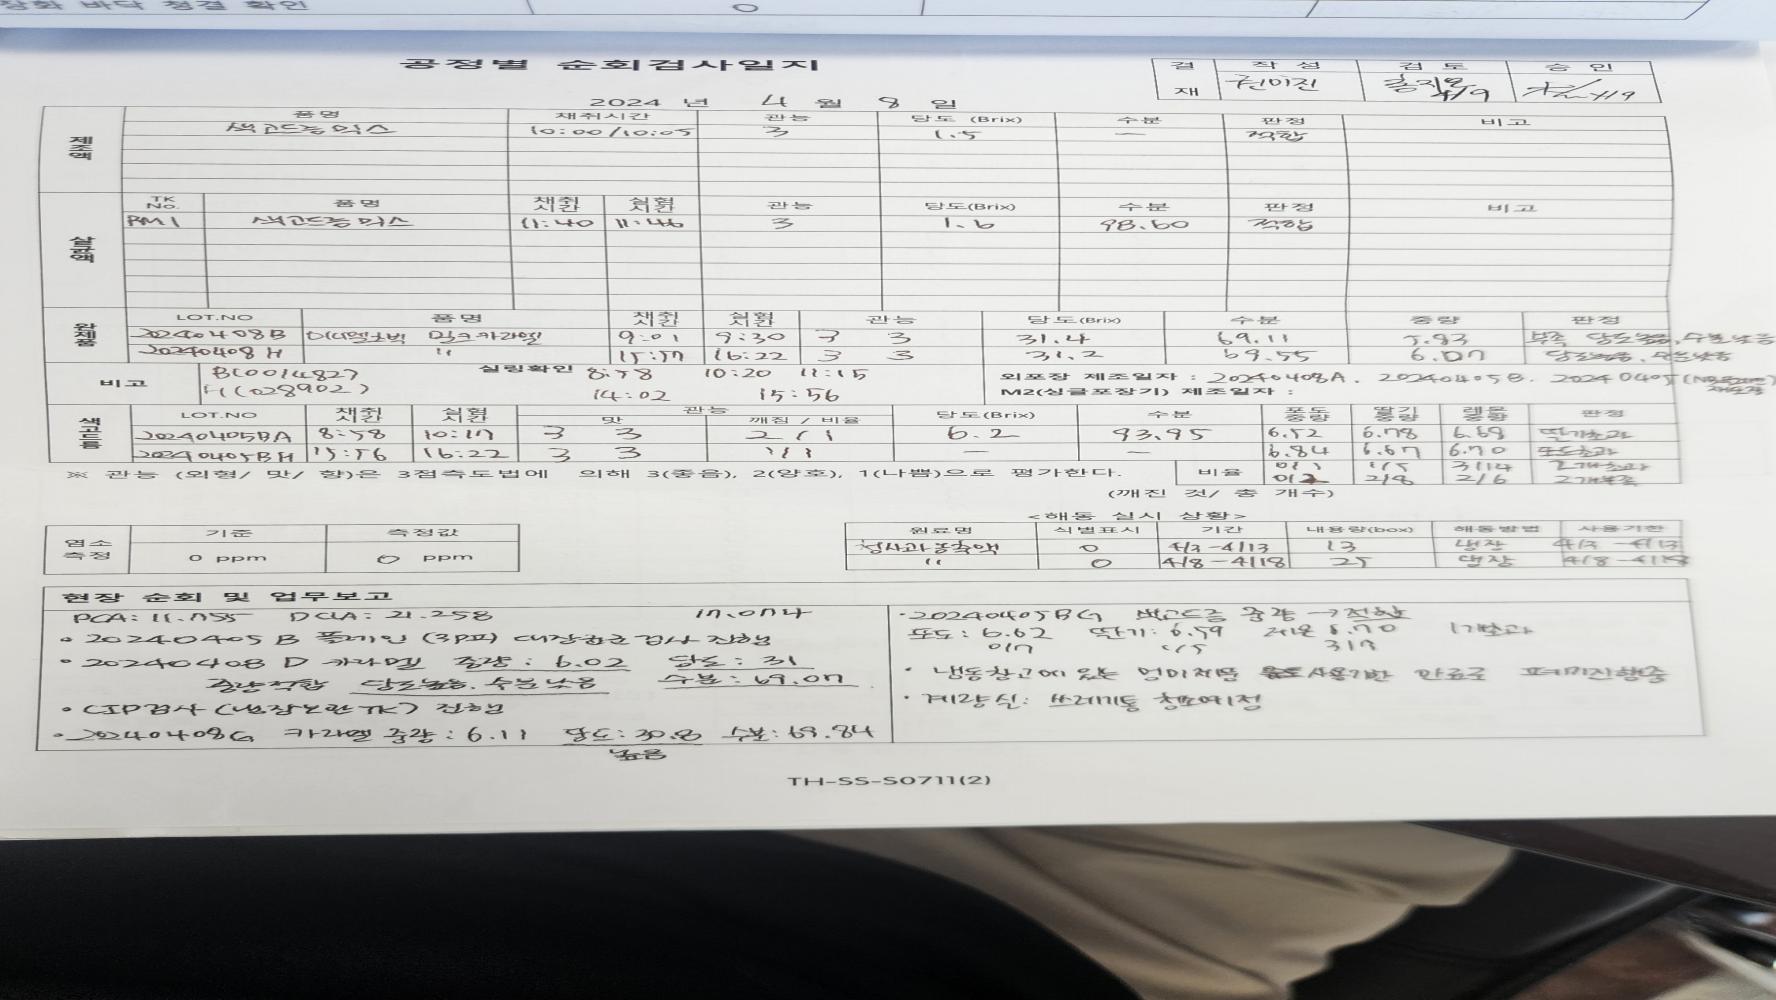 장화 바닥 청결 확인 O
공정별 순회검사일지
결재 작성 검토 승인
권미진 4/9 4/9
2024 년 4 월 8 일
제조액 품명 채취시간 관능 당도 (Brix) 수분 판정 비고
색고드름믹스 10:00/10:05 3 1.5 — 적합
살균액 TK No. 품명 채취시간 실험시간 관능 당도(Brix) 수분 판정 비고
RM1 색고드름믹스 11:40 11:46 3 1.6 98.60 적합
완제품 LOT.NO 품명 채취시간 실험시간 관능 당도(Brix) 수분 중량 판정
20240408B 밀크카라멜 9:01 9:30 3 3 31.4 69.11 5.83 부족 당도높음, 수분낮음
20240408H " 15:57 16:22 3 3 31.2 69.55 6.07 당도높음, 수분낮음
비고 B(0014827) 실링확인 8:58 10:20 11:15 외포장 제조일자 : 20240408A. 20240405B. 20240405
H(028902) 14:02 15:56 M2(싱글포장기) 제조일자 :
색고드름 LOT.NO 채취시간 실험시간 관능 당도(Brix) 수분 포도중량 딸기중량 레몬중량 판정
맛 깨짐 / 비율
20240405BA 8:58 10:17 3 3 2/1 6.2 93.95 6.52 6.78 6.69 딸기초과
20240405BH 15:56 16:22 3 3 1/1 — — 6.84 6.67 6.70 포도초과
※ 관능 (외형/ 맛/ 향)은 3점측도법에 의해 3(좋음), 2(양호), 1(나쁨)으로 평가한다. 비율 0/7 1/5 3/14 2개초과
0/2 2/8 2/6 2개부족
(깨진 것/ 총 개수)
<해동 실시 상황>
염소측정 기준 측정값
0 ppm 0 ppm
원료명 식별표시 기간 내용량(box) 해동방법 사용기한
청사과농축액 O 4/3-4/13 13 냉장 4/3-4/13
" O 4/8-4/18 25 냉장 4/8-4/18
현장 순회 및 업무보고
PCA: 11.755 DCLA: 21.258 17.074
• 20240405B 플레인 (3PM) 냉장보관 검사 진행
• 20240408D 카라멜 중량 : 6.02 당도 : 31
중량적합 당도높음. 수분낮음 수분 : 69.07
• CIP검사 (냉장보관TK) 진행
• 20240408G 카라멜 중량 : 6.11 당도:30.8 수분:69.84
높음
• 20240405BG 색고드름 중량 → 적합
포도: 6.62 딸기: 6.59 레몬 6.70 1개초과
0/7 1/5 3/7
• 냉동창고에 있는 사용기한 만료로 폐기진행중
• 계량실: 쓰레기통 청소예정
TH-SS-S0711(2)